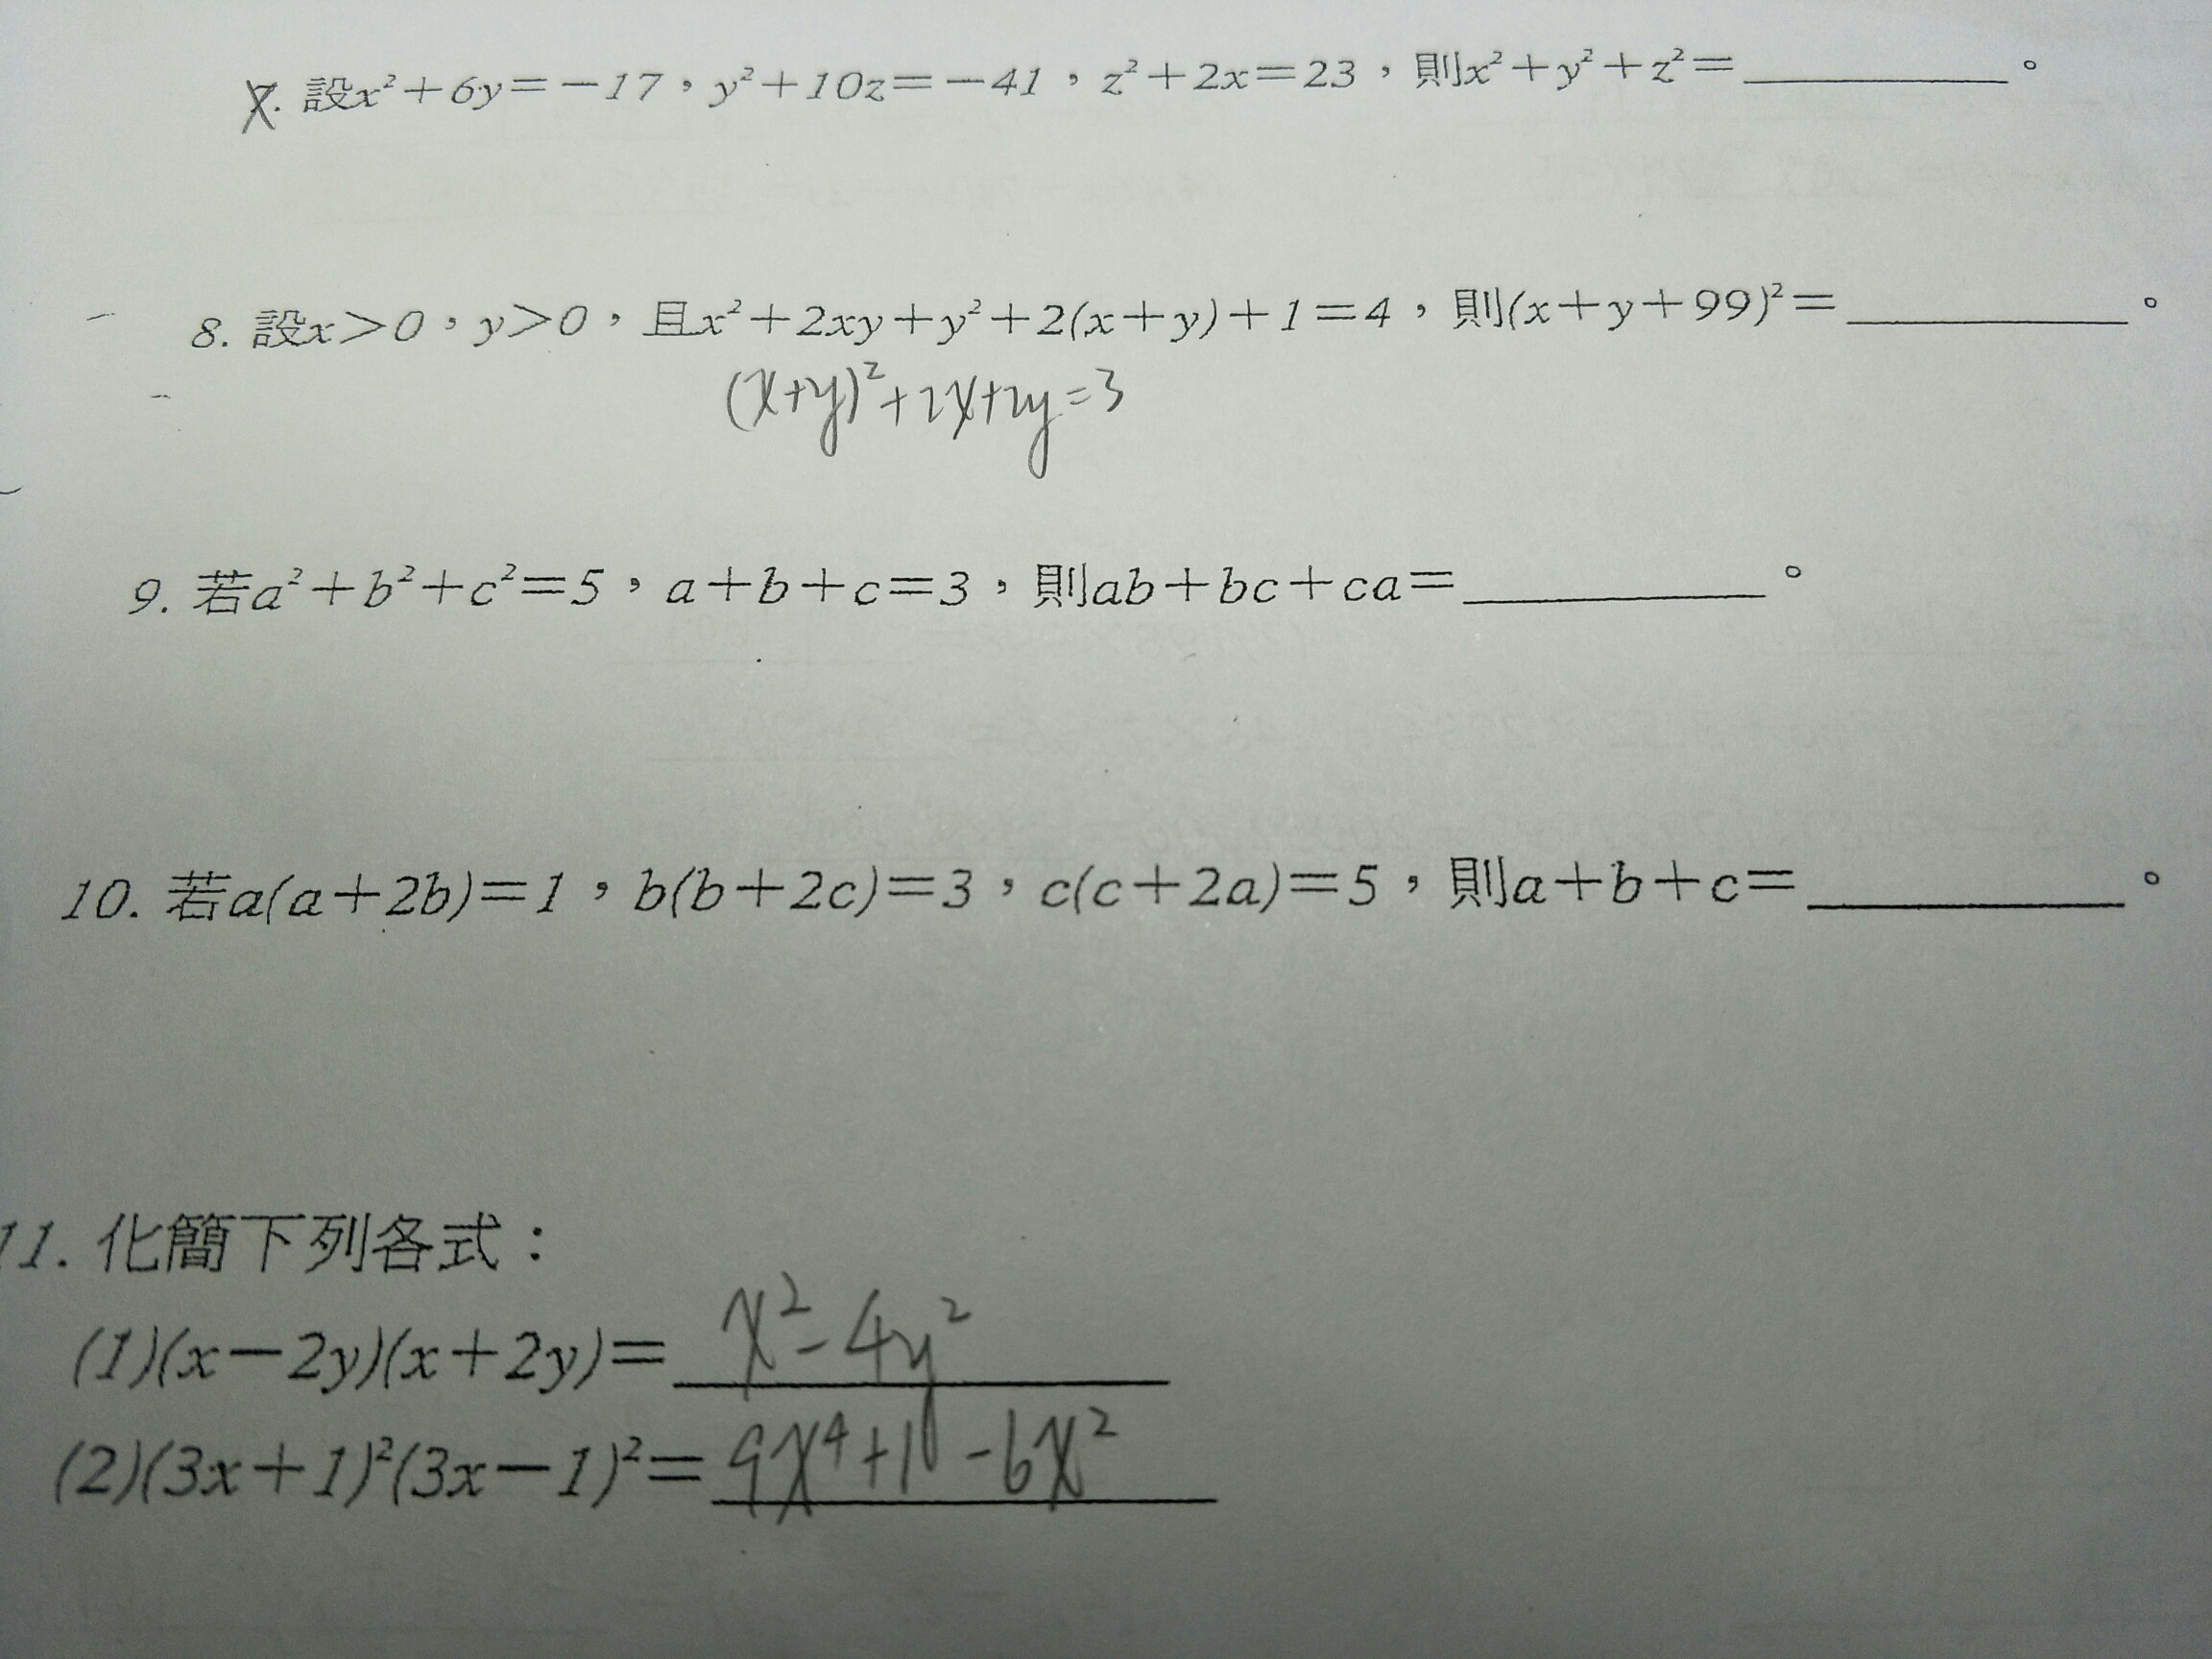 7. 設x²+6y=-17，y²+10z=-41，z²+2x=23，則x²+y²+z²=__________。
8. 設x>0，y>0，且x²+2xy+y²+2(x+y)+1=4，則(x+y+99)²=__________。
(x+y)²+2x+2y=3
9. 若a²+b²+c²=5，a+b+c=3，則ab+bc+ca=__________。
10. 若a(a+2b)=1，b(b+2c)=3，c(c+2a)=5，則a+b+c=__________。
11. 化簡下列各式：
(1)(x-2y)(x+2y)= x²-4y²
(2)(3x+1)²(3x-1)²= 9x⁴+1-6x²